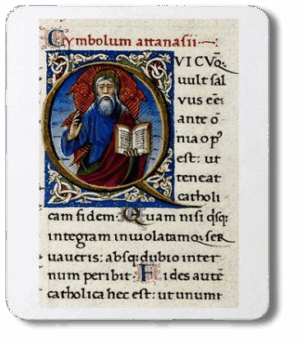 Symbolum attanasii
QVICVQ̃
vult sal
vus eẽ
ante õ
nia opꝰ
est : ut
teneat
catholi
cam fidem : Quam nisi qsq;
integram inuiolatamq; ser
uaueris : absq; dubio inter
num peribit : Fides autẽ
catholica hec est : ut unum